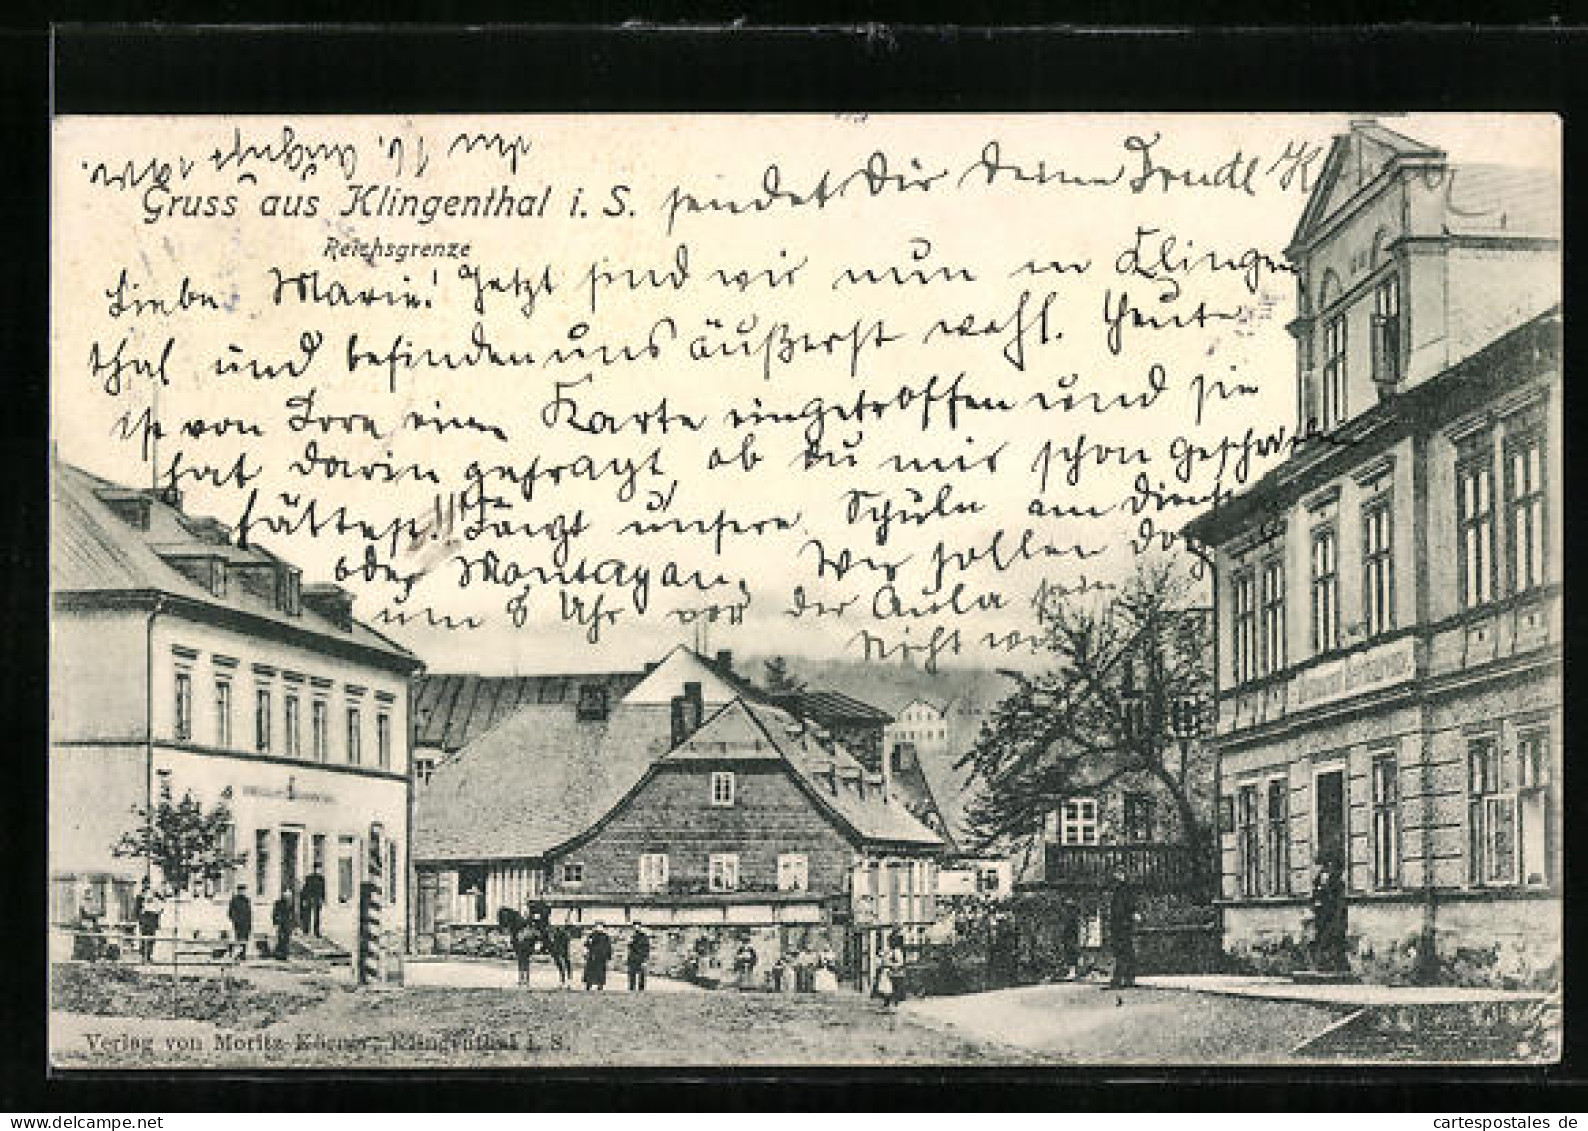 den 16. August
Gruss aus Klingenthal i. S. sendet Dir Deine Trudl K
Reichsgrenze
Liebe Marie! Jetzt sind wir nun in Klingen
thal und befinden uns äußerst wohl. Heute
ist von Lore eine Karte eingetroffen und sie
hat darin gefragt ob du mir schon geschrieben
hättest!! Fängt unsere Schule am Dienstag
oder Montag an. Wir sollen doch
um 8 Uhr vor der Aula sein
nicht
Verlag von Moritz Körner, Klingenthal i. S.
cartespostales de